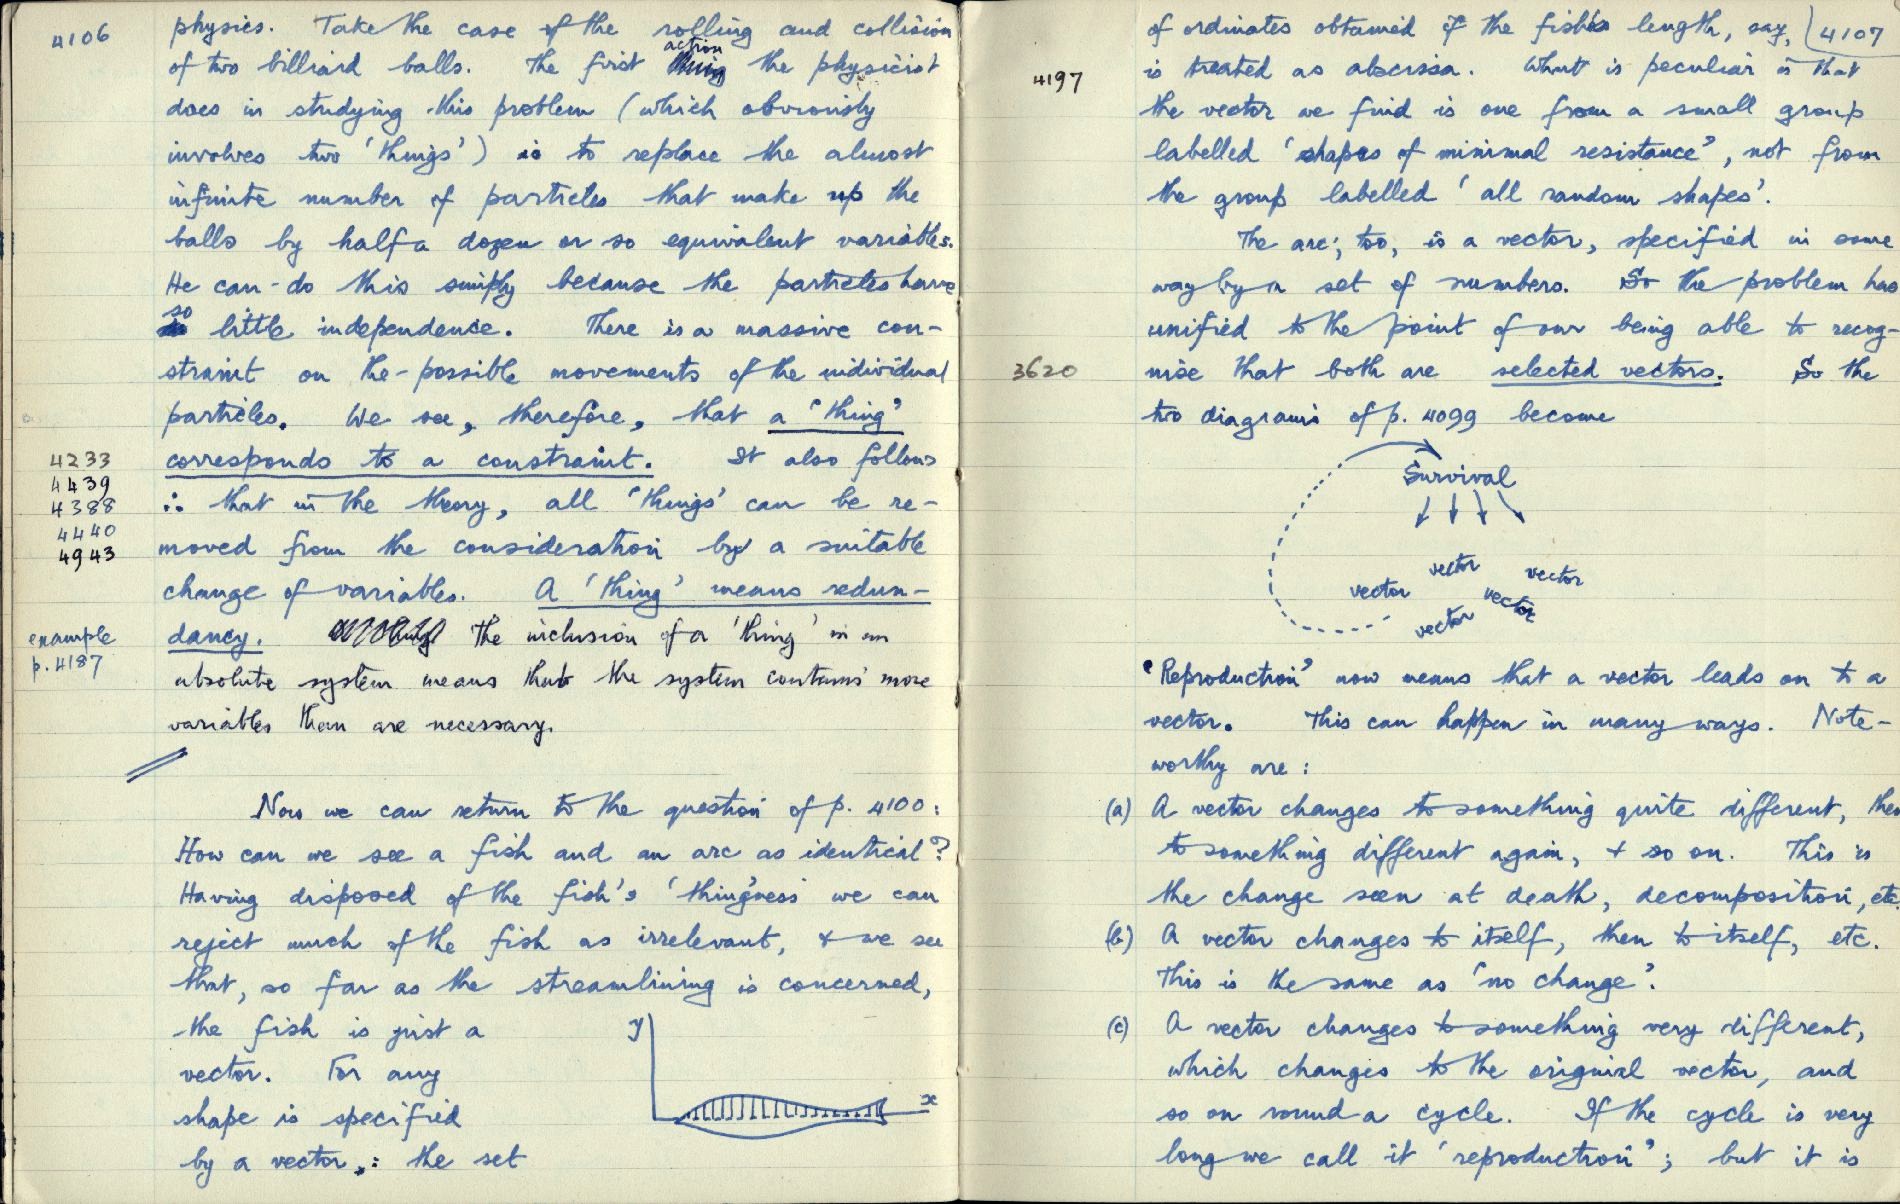 4106
physics. Take the case of the rolling and collision
action
of two billiard balls. The first thing the physicist
does in studying this problem (which obviously
involves two 'things') is to replace the almost
infinite number of particles that make up the
balls by half a dozen or so equivalent variables.
He can do this simply because the particles have
so
little independence. There is a massive con-
straint on the possible movements of the individual
particles. We see, therefore, that a 'thing'
corresponds to a constraint. It also follows
4233
4439
4388
4440
4943
∴ that in the theory, all 'things' can be re-
moved from the consideration by a suitable
change of variables. A 'thing' means redun-
example
p. 4187
dancy. The inclusion of a 'thing' in an
absolute system means that the system contains more
variables than are necessary.
Now we can return to the question of p. 4100:
How can we see a fish and an arc as identical?
Having disposed of the fish's 'thingness' we can
reject much of the fish as irrelevant, & we see
that, so far as the streamlining is concerned,
the fish is just a
vector. For any
shape is specified
by a vector,: the set
y
x
4107
of ordinates obtained if the fish's length, say,
4197
is treated as abscissa. What is peculiar is that
the vector we find is one from a small group
labelled 'shapes of minimal resistance', not from
the group labelled 'all random shapes'.
The arc, too, is a vector, specified in some
way by a set of numbers. So the problem has
unified to the point of our being able to recog-
3620
nise that both are selected vectors. So the
two diagrams of p. 4099 become
Survival
vector
vector
vector
vector
vector
'Reproduction' now means that a vector leads on to a
vector. This can happen in many ways. Note-
worthy are:
(a) A vector changes to something quite different, then
to something different again, & so on. This is
the change seen at death, decomposition, etc.
(b) A vector changes to itself, then to itself, etc.
This is the same as 'no change'.
(c) A vector changes to something very different,
which changes to the original vector, and
so on round a cycle. If the cycle is very
long we call it 'reproduction'; but it is